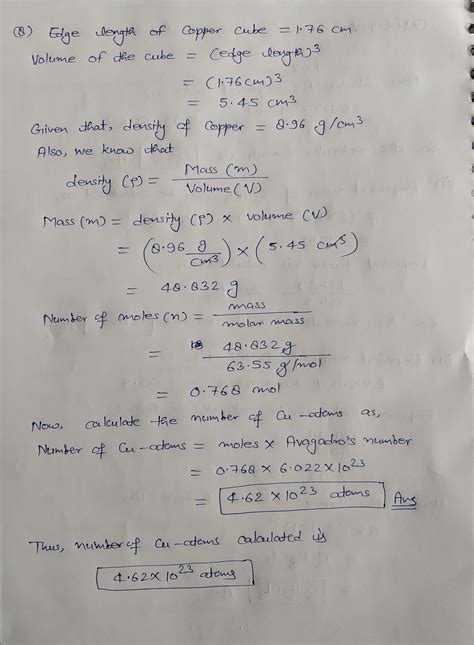 (8) Edge length of copper cube = 1.76 cm.
Volume of the cube = (edge length)³
= (1.76cm)³
= 5.45 cm³
Given that, density of copper = 8.96 g/cm³
Also, we know that
density (ρ) = Mass (m) / Volume (V)
Mass (m) = density (ρ) × volume (V)
= (8.96 g/cm³) × (5.45 cm³)
= 48.832 g
Number of moles (n) = mass / molar mass
= 48.832 g / 63.55 g/mol
= 0.768 mol
Now, calculate the number of Cu-atoms as,
Number of Cu-atoms = moles × Avagadro's number
= 0.768 × 6.022 × 10²³
= 4.62 × 10²³ atoms Ans
Thus, number of Cu-atoms calculated is
4.62 × 10²³ atoms